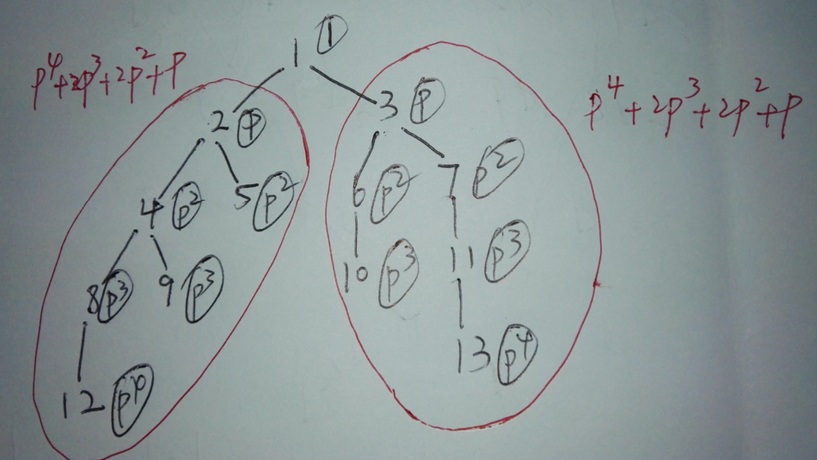 p⁴+2p³+2p²+p
1 ①
p⁴+2p³+2p²+p
2 p
3 p
4 p²
5 p²
6 p²
7 p²
8 p³
9 p³
10 p³
11 p³
12 p⁴
13 p⁴